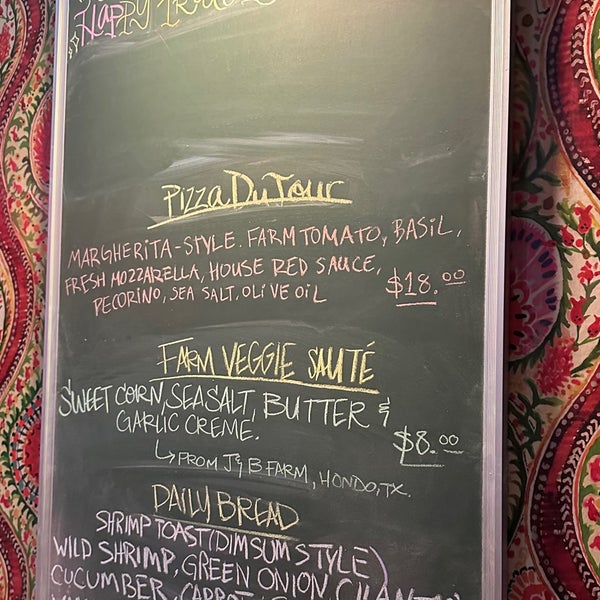 Happy
Pizza Du Jour
MARGHERITA-STYLE. FARM TOMATO, BASIL,
FRESH MOZZARELLA, HOUSE RED SAUCE,
PECORINO, SEA SALT, OLIVE OIL $18.00
FARM VEGGIE SAUTÉ
SWEET CORN, SEA SALT, BUTTER &
GARLIC CREME. $8.00
FROM J&B FARM, HONDO, TX.
DAILY BREAD
SHRIMP TOAST (DIM SUM STYLE)
WILD SHRIMP, GREEN ONION, CILANTRO
CUCUMBER, CARROT